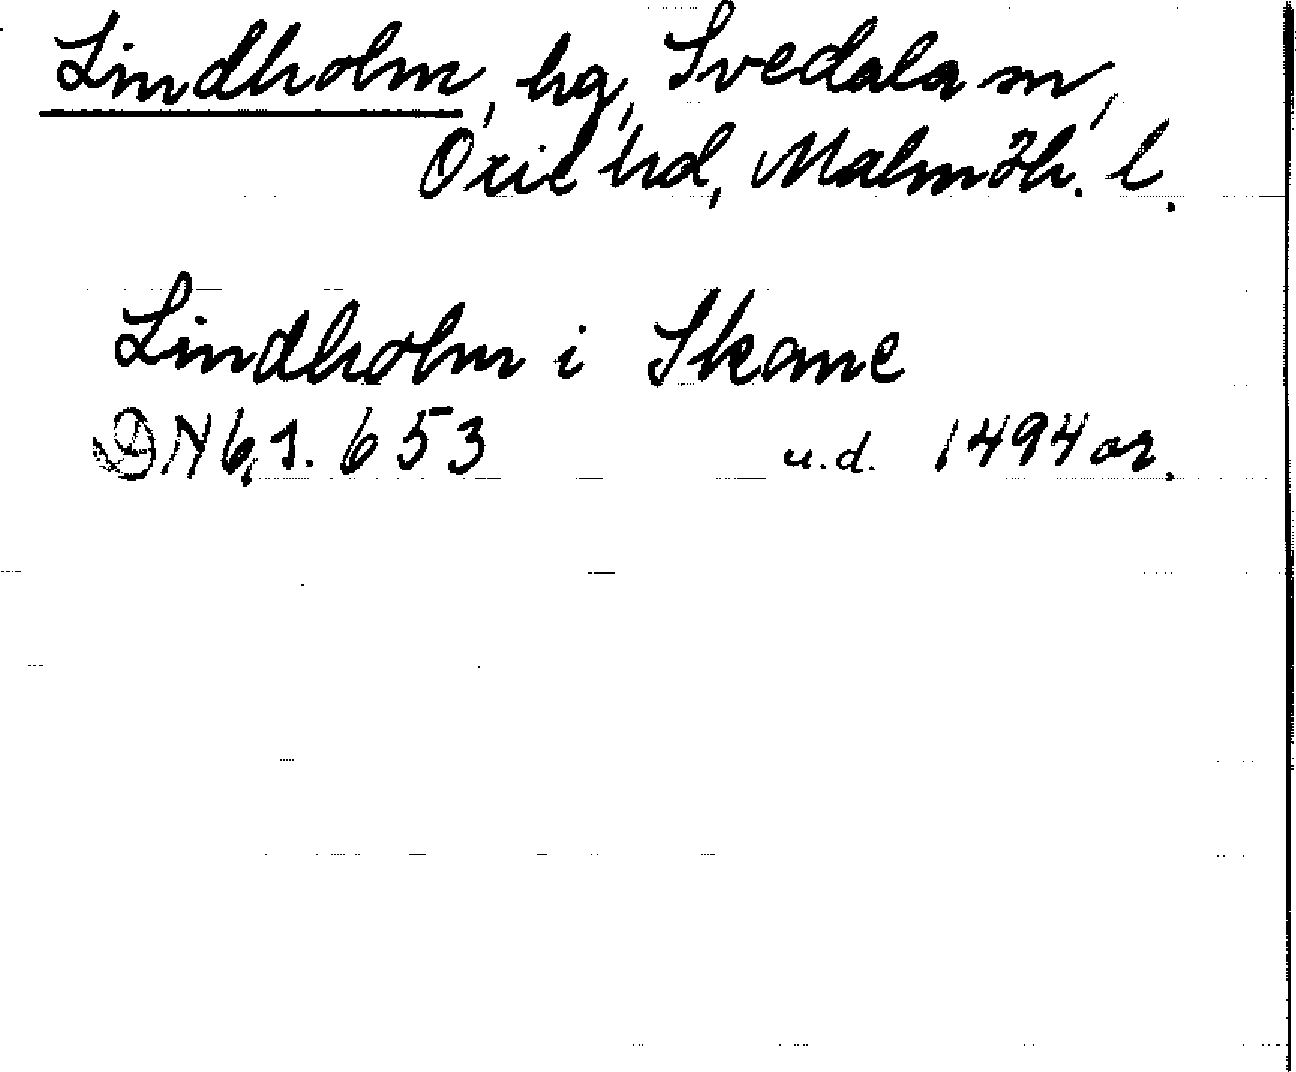 Lindholm, hg, Svedala sn,
Oxie hd, Malmöh. l.
Lindholm i Skane
DN 6,1. 653 u.d. 1494 or.